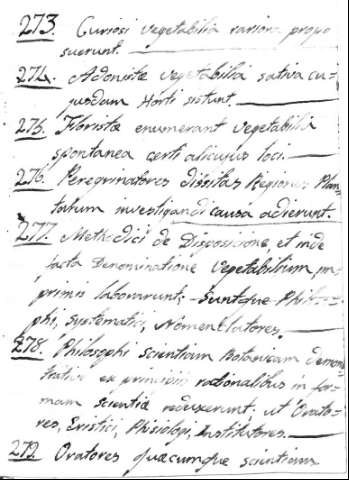 273. Curiosi vegetabilia rariora propo
suerunt.
274. Adonistæ vegetabilia sativa cu-
jusdam Horti sistunt.
275. Floristæ enumerant vegetabilia
spontanea certi alicujus loci.
276. Peregrinatores dissitas Regiones Plan-
tarum investigandi causa adierunt.
277. Methodici de Dispositione et inde
facta Denominatione vegetabilium im-
primis laborarunt, Suntque Philoso-
phi, Systematici, Nomenclatores.
278. Philosophi scientiam Botanicam demons
trative ex principiis rationalibus in for-
mam scientiæ reduxerunt: ut Orato-
res, Eristici, Phisiologi, Institutores.
279. Oratores quæcumque scientiam